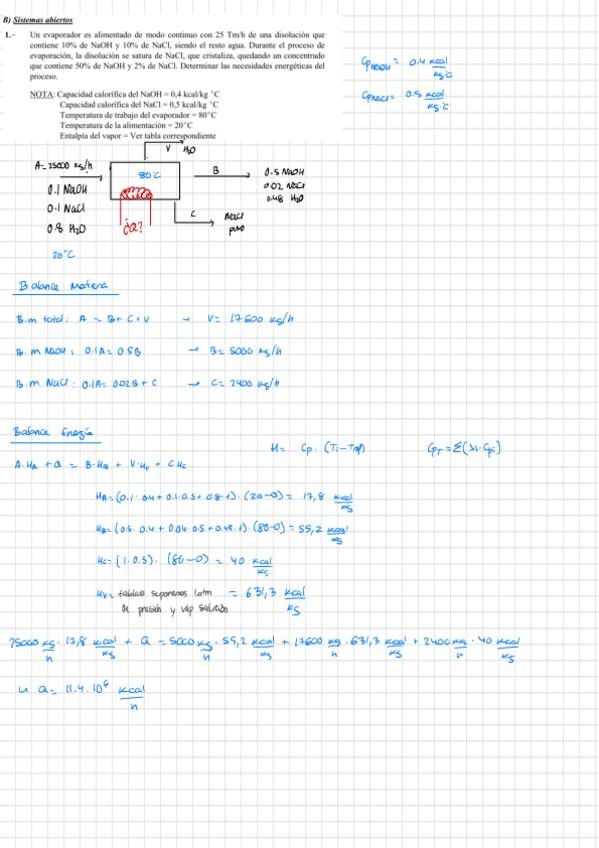 B) Sistemas abiertos
1.- Un evaporador es alimentado de modo continuo con 25 Tm/h de una disolución que
contiene 10% de NaOH y 10% de NaCl, siendo el resto agua. Durante el proceso de
evaporación, la disolución se satura de NaCl, que cristaliza, quedando un concentrado
que contiene 50% de NaOH y 2% de NaCl. Determinar las necesidades energéticas del
proceso.
NOTA: Capacidad calorífica del NaOH = 0,4 kcal/kg °C
Capacidad calorífica del NaCl = 0,5 kcal/kg °C
Temperatura de trabajo del evaporador = 80°C
Temperatura de la alimentación = 20°C
Entalpía del vapor = Ver tabla correspondiente
CpNaOH = 0.4 kcal/kg·°C
CpNaCl = 0.5 kcal/kg·°C
V H2O
A = 25000 kg/h
80°C
B
0.5 NaOH
0.02 NaCl
0.48 H2O
0.1 NaOH
0.1 NaCl
0.8 H2O
¿Q?
C
NaCl
puro
20°C
Balance Materia
B.m total: A = B + C + V → V = 17600 kg/h
B.m NaOH: 0.1A = 0.5B → B = 5000 kg/h
B.m NaCl: 0.1A = 0.02B + C → C = 2400 kg/h
Balance Energía
H = Cp · (Ti - Tref) CpT = Σ(xi · Cpi)
A·HA + Q = B·HB + V·HV + C·HC
HA = (0.1 · 0.4 + 0.1·0.5 + 0.8·1) · (20-0) = 17,8 kcal/kg
HB = (0.5 · 0.4 + 0.04·0.5 + 0.48·1) · (80-0) = 55,2 kcal/kg
HC = (1·0.5) · (80-0) = 40 kcal/kg
HV = tablas suponemos 1atm = 631,3 kcal/kg
de presión y vap saturado
25000 kg/h · 17,8 kcal/kg + Q = 5000 kg/h · 55,2 kcal/kg + 17600 kg/h · 631,3 kcal/kg + 2400 kg/h · 40 kcal/kg
↳ Q = 11.4·10⁶ kcal/h